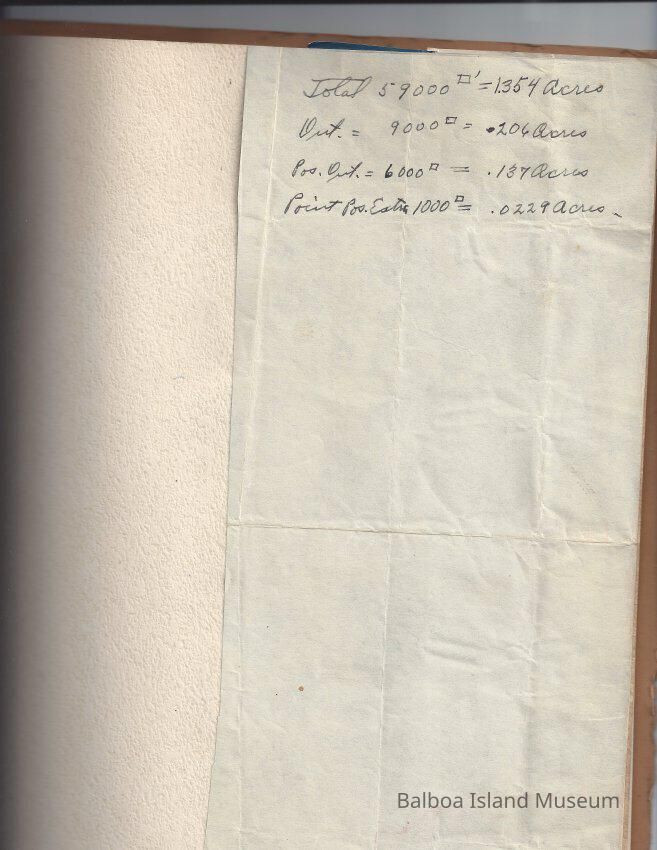 Total 59000 □' = 1.354 Acres
Out. = 9000 □ = .206 Acres
Pos. Out. = 6000 □ = .137 Acres
Point Pos. Extra 1000 □ = .0229 Acres
Balboa Island Museum